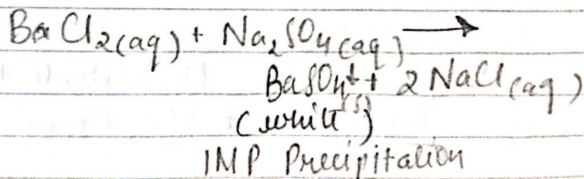 BaCl₂(aq) + Na₂SO₄(aq) →
BaSO₄↓(s) + 2NaCl(aq)
(white)
IMP Precipitation